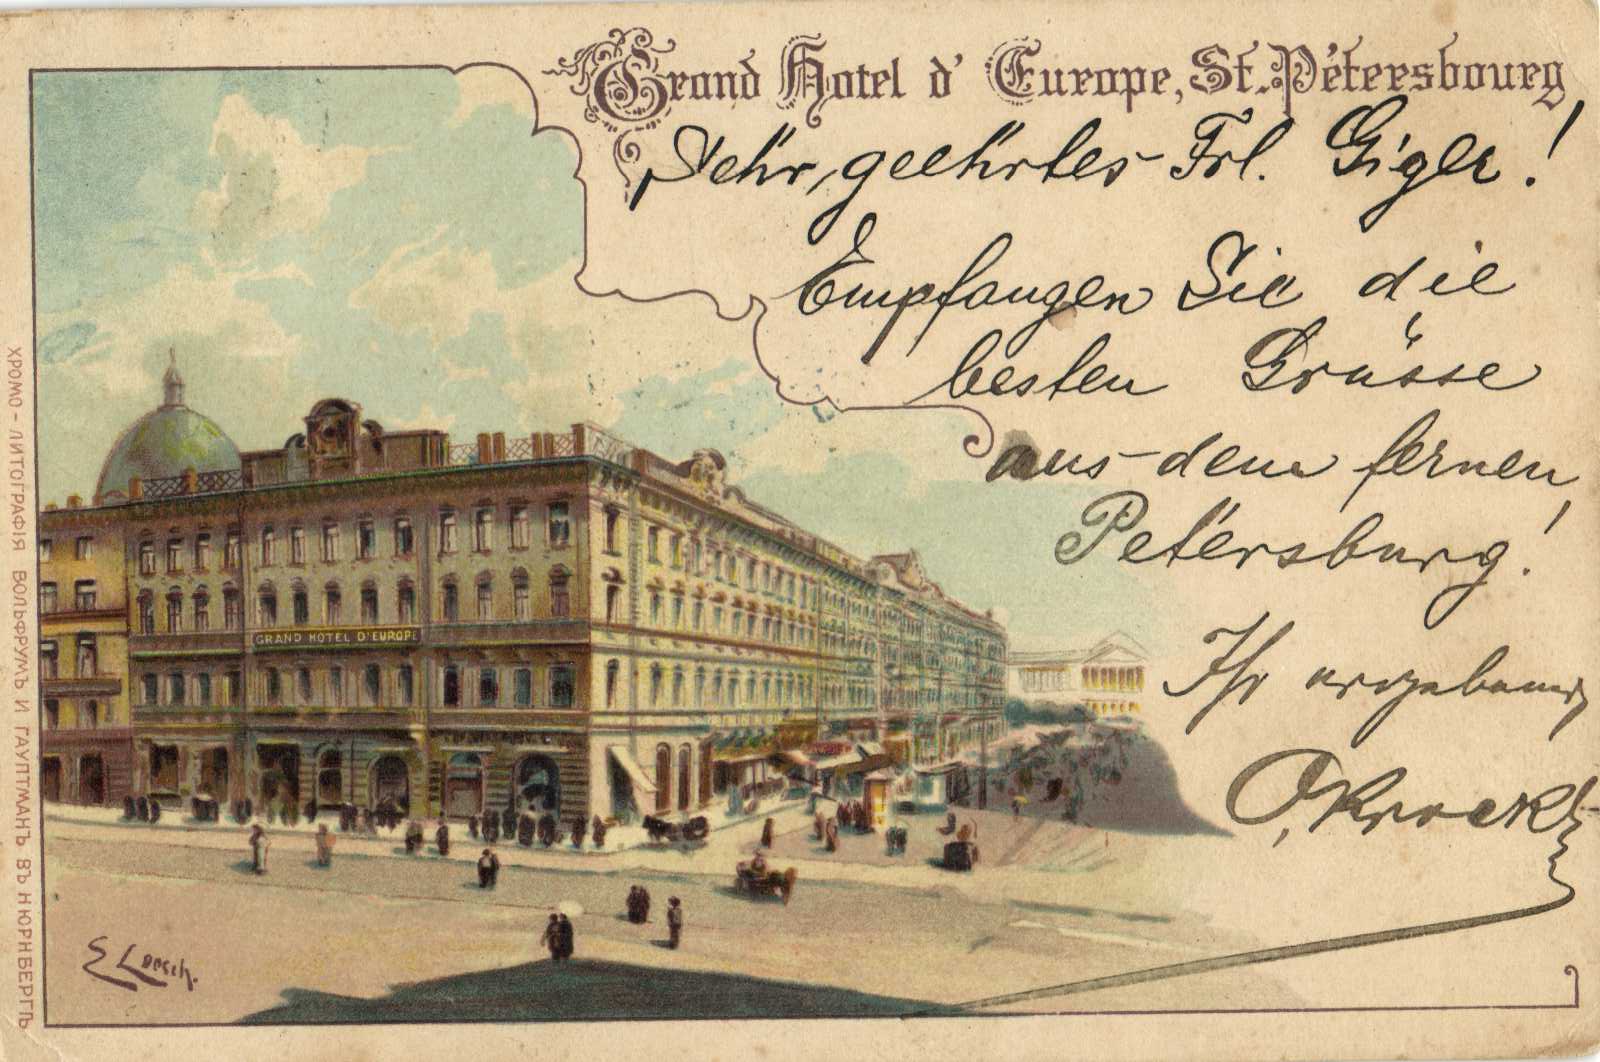 Grand Hotel d' Europe, St. Pétersbourg
Sehr geehrtes Frl. Giger!
Empfangen Sie die
besten Grüsse
aus dem fernen
Petersburg!
Ihr ergebener
GRAND HOTEL D'EUROPE
E Loesch.
ХРОМО-ЛИТОГРАФІЯ ВОЛЬФРУМЪ И ГАУПТМАНЪ ВЪ НЮРНБЕРГЪ